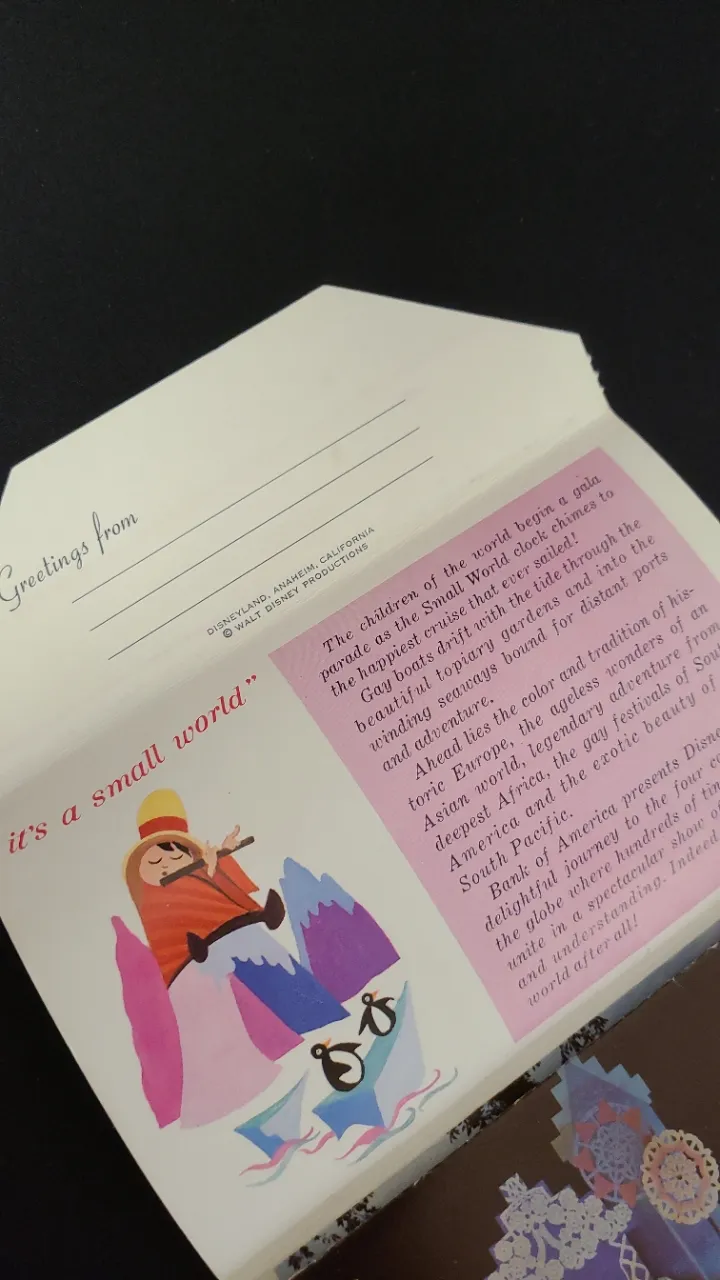 Greetings from
DISNEYLAND, ANAHEIM, CALIFORNIA
© WALT DISNEY PRODUCTIONS
it's a small world”
The children of the world begin a gala
parade as the Small World clock chimes to
the happiest cruise that ever sailed!
Gay boats drift with the tide through the
beautiful topiary gardens and into the
winding seaways bound for distant ports
and adventure.
Ahead lies the color and tradition of his-
toric Europe, the ageless wonders of an
Asian world, legendary adventure from
deepest Africa, the gay festivals of
America and the exotic beauty of
South Pacific.
Bank of America presents
delightful journey to the four
the globe where hundreds of
unite in a spectacular show
and understanding. Indeed
world after all!